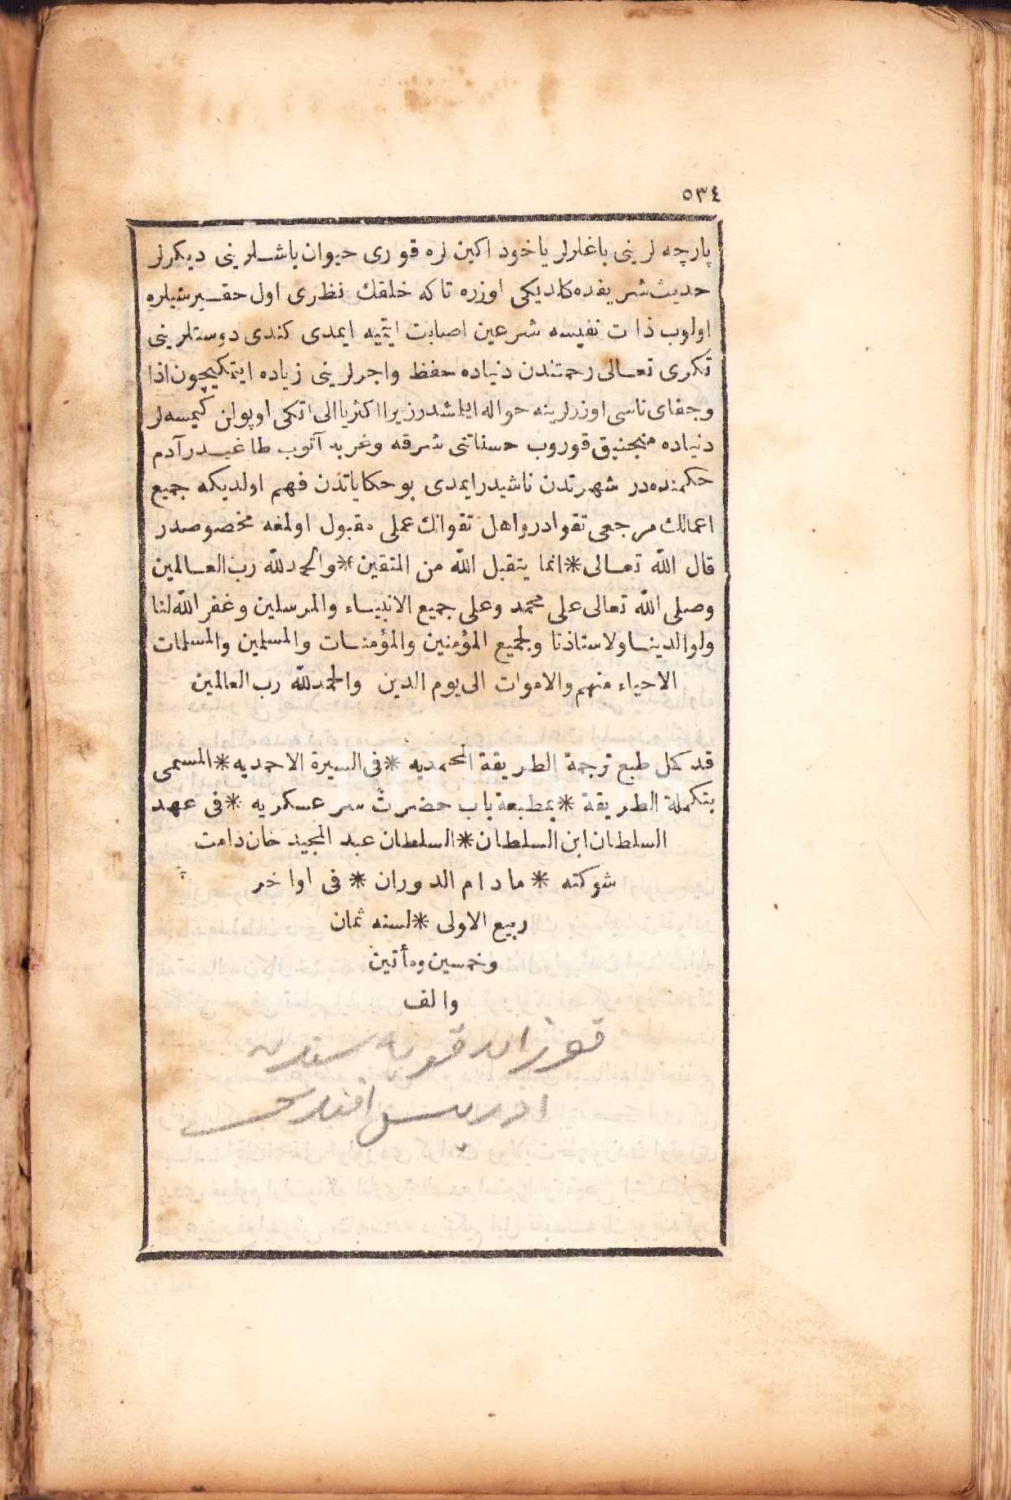 ٥٣٤
پارچه لرینی باغلرلر یاخود اکین لره قوری حیوان باشلرینی دیکرلر
حدیث شریفده کلدیکی اوزره تا که خلقك نظری اول حقیر شیلره
اولوب ذات نفیسه شر عین اصابت ایتمیه ایمدی کندی دوستلرینی
تکری تعالی رحمتندن دنیاده حفظ واجرلرینی زیاده ایتمکیچون اذا
وجفای ناسی اوزرلرینه حواله ایلمشدر زیرا اکثریا الی اتکی اوپولن کیمسه لر
دنیاده منجنیق قوروب حسناتنی شرقه وغربه آتوب طاغیدر آدم
حکمنده در شهرتدن ناشیدر ایمدی بو حکایاتدن فهم اولدیکه جمیع
اعمالك مرجعی تقوادر واهل تقوانك عملی مقبول اولمغه مخصوصدر
قال الله تعالی * انما یتقبل الله من المتقین * والحمد لله رب العالمین
وصلی الله تعالی علی محمد وعلی جمیع الانبیاء والمرسلین وغفر الله لنا
ولوالدینا ولاستاذنا ولجمیع المؤمنین والمؤمنات والمسلمین والمسلمات
الاحیاء منهم والاموات الی یوم الدین والحمد لله رب العالمین
قد کمل طبع ترجمة الطریقة المحمدیه * فی السیرة الاحمدیه * المسمی
بتکملة الطریقة * بمطبعة باب حضرت سر عسکریه * فی عهد
السلطان ابن السلطان * السلطان عبد المجید خان دامت
شوکته * مادام الدوران * فی اواخر
ربیع الاولی * لسنه ثمان
وخمسین ومأتین
والف
ادریس افندی